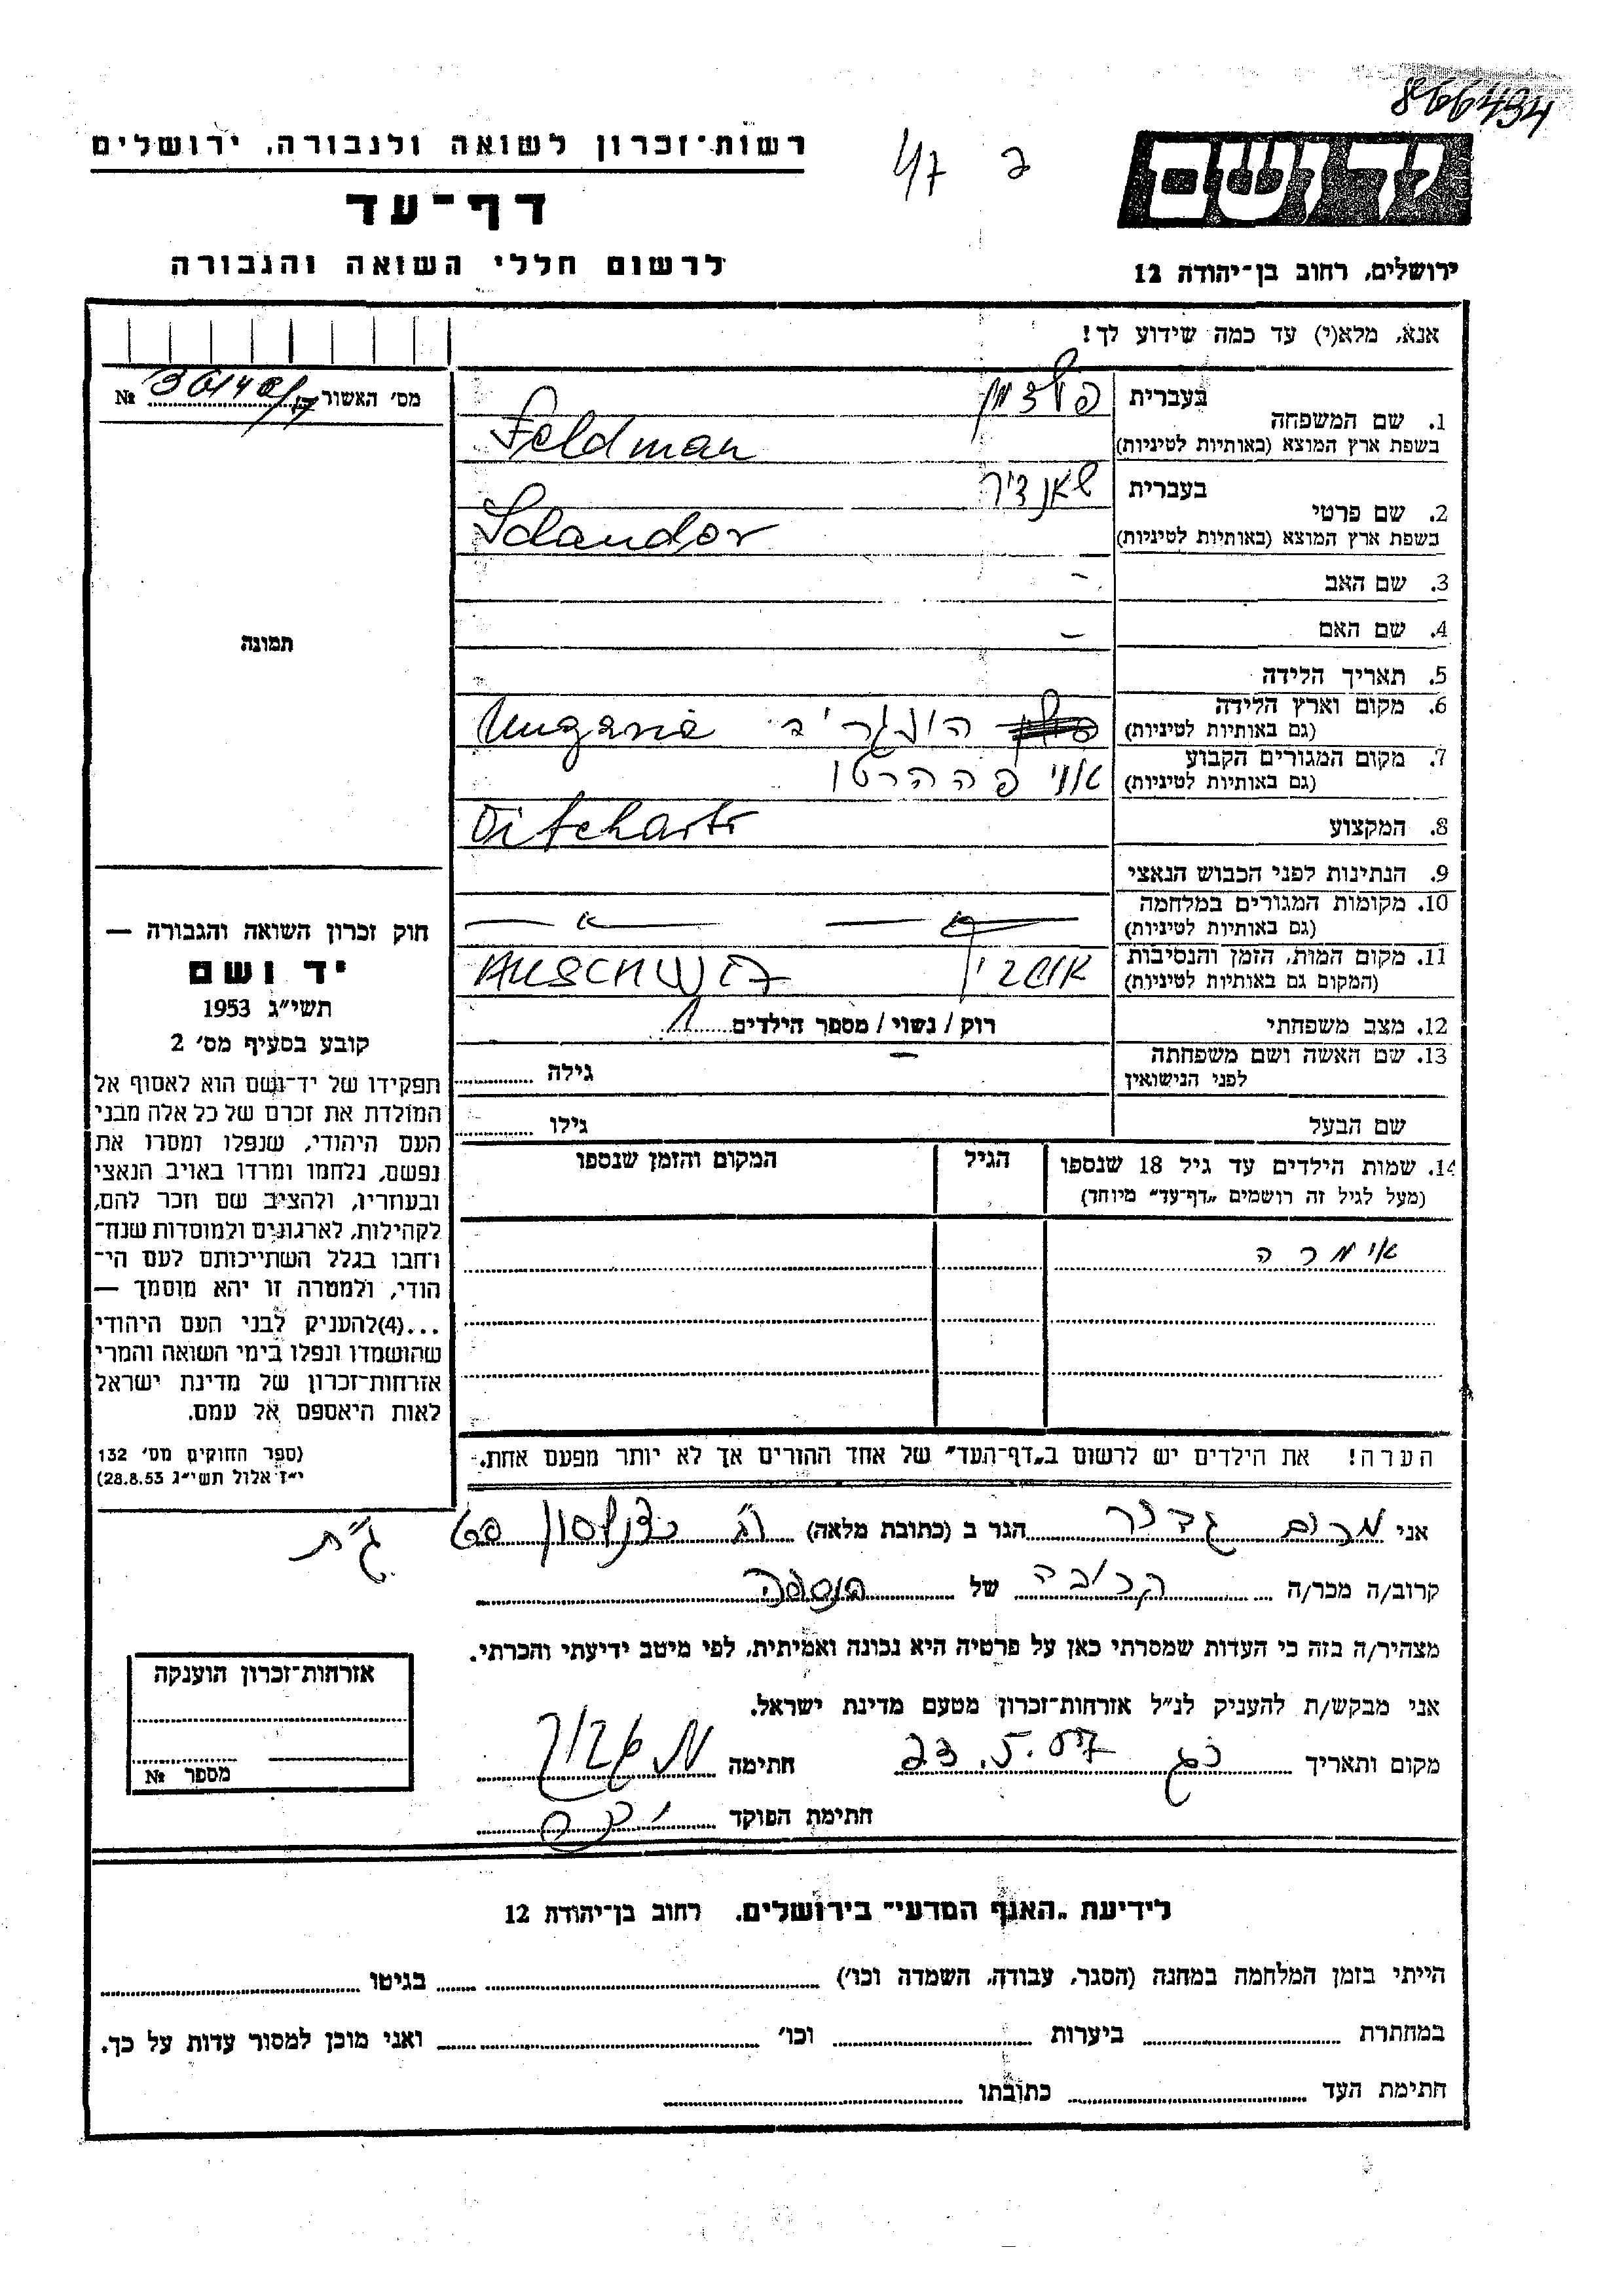 866494
רשות־זכרון לשואה ולגבורה, ירושלים
דף־עד
לרשום חללי השואה והגבורה
ידושם
ירושלים, רחוב בן־יהודה 12
47
אנא, מלא(י) עד כמה שידוע לך!
מס׳ האשור № 36148/17
1. שם המשפחה בעברית פלדמן
בשפת ארץ המוצא (באותיות לטיניות) Feldman
2. שם פרטי בעברית שאנדור
בשפת ארץ המוצא (באותיות לטיניות) Schandor
3. שם האב –
4. שם האם –
5. תאריך הלידה
6. מקום וארץ הלידה (גם באותיות לטיניות) הונגריה Ungaria
7. מקום המגורים הקבוע (גם באותיות לטיניות)
8. המקצוע
9. הנתינות לפני הכבוש הנאצי
10. מקומות המגורים במלחמה (גם באותיות לטיניות)
11. מקום המות, הזמן והנסיבות (המקום גם באותיות לטיניות)
12. מצב משפחתי רוק / נשוי / מספר הילדים 1
13. שם האשה ושם משפחתה לפני הנישואין – גילה
שם הבעל גילו
14. שמות הילדים עד גיל 18 שנספו הגיל המקום והזמן שנספו
(מעל לגיל זה רושמים „דף־עד״ מיוחד)
הערה! את הילדים יש לרשום ב„דף־העד״ של אחד ההורים אך לא יותר מפעם אחת.
תמונה
חוק זכרון השואה והגבורה —
יד ושם
תשי״ג 1953
קובע בסעיף מס׳ 2
תפקידו של יד־ושם הוא לאסוף אל
המולדת את זכרם של כל אלה מבני
העם היהודי, שנפלו ומסרו את
נפשם, נלחמו ומרדו באויב הנאצי
ובעוזריו, ולהציב שם וזכר להם,
לקהילות, לארגונים ולמוסדות שנח־
רחבו בגלל השתייכותם לעם הי־
הודי, ולמטרה זו יהא מוסמך —
...(4)להעניק לבני העם היהודי
שהושמדו ונפלו בימי השואה והמרי
אזרחות־זכרון של מדינת ישראל
לאות היאספם אל עמם.
(ספר החוקים מס׳ 132
י״ז אלול תשי״ג 28.8.53)
אני הגר ב (כתובת מלאה)
קרוב/ה מכר/ה קרובה של
מצהיר/ה בזה כי העדות שמסרתי כאן על פרטיה היא נכונה ואמיתית, לפי מיטב ידיעתי והכרתי.
אני מבקש/ת להעניק לנ״ל אזרחות־זכרון מטעם מדינת ישראל.
מקום ותאריך 23.5.57 חתימה
חתימת הפוקד
אזרחות־זכרון הוענקה
מספר №
לידיעת „האגף המדעי״ בירושלים, רחוב בן־יהודה 12
הייתי בזמן המלחמה במחנה (הסגר, עבודה, השמדה וכו׳) בגיטו
במחתרת ביערות וכו׳ ואני מוכן למסור עדות על כך.
חתימת העד כתובתו